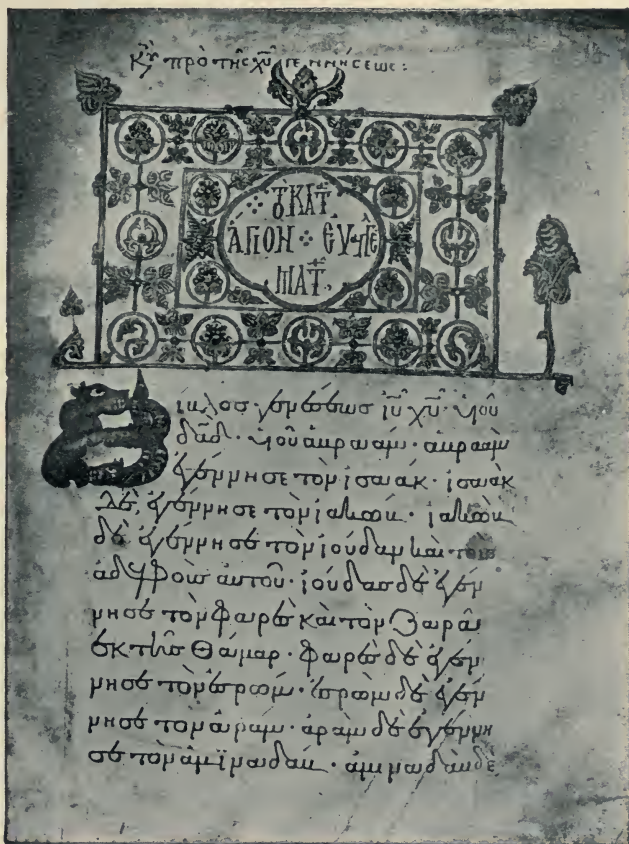 Κυ πρὸ τῆς χυ γεννήσεως:
τὸ κατ
ἅγιον ευ
ματ
ίβλος γενέσεως ιυ χυ υἱοῦ
δαδ · υἱοῦ ἀβραάμ · ἀβραὰμ
ἐγέννησε τὸν ἰσαάκ · ἰσαὰκ
δὲ ἐγέννησε τὸν ἰακώβ · ἰακὼβ
δὲ ἐγέννησε τὸν ἰούδαν καὶ τοὺς
ἀδελφοὺς αὐτοῦ · ἰούδας δὲ ἐγέν
νησε τὸν φαρὲς καὶ τὸν ζαρὰ
ἐκ τῆς θάμαρ · φαρὲς δὲ ἐγέν
νησε τὸν ἐσρώμ · ἐσρὼμ δὲ ἐγέν
νησε τὸν ἀράμ · ἀρὰμ δὲ ἐγέννη
σε τὸν ἀμιναδάβ · ἀμιναδὰβ δὲ